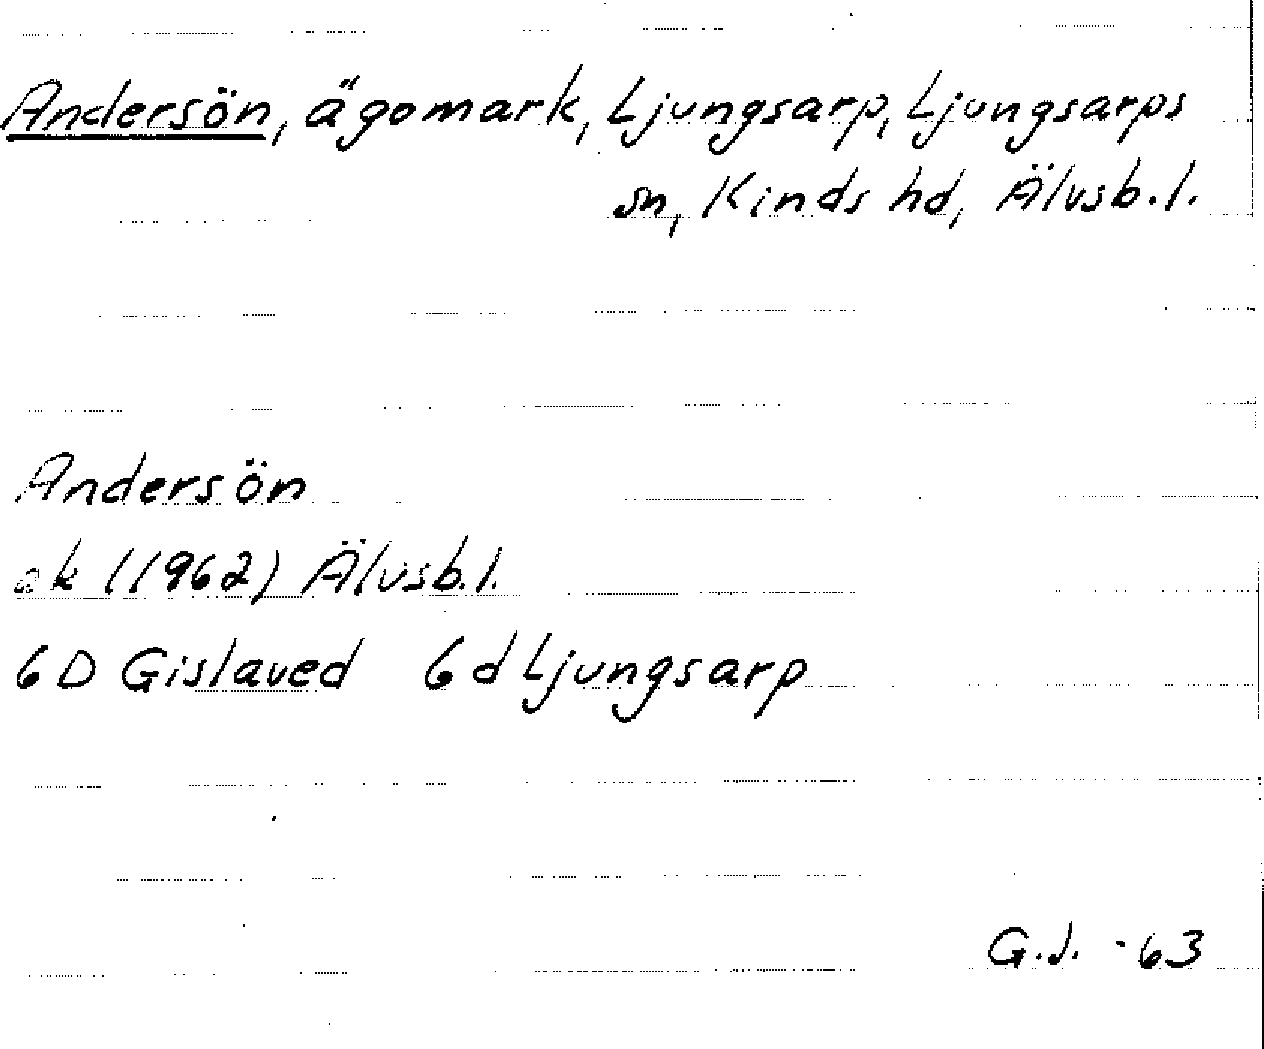 Andersön, ägomark, Ljungsarp, Ljungsarps
sn, Kinds hd, Älvsb.l.
Andersön
ek (1962) Älvsb.l.
6D Gislaved 6d Ljungsarp
G.J. -63